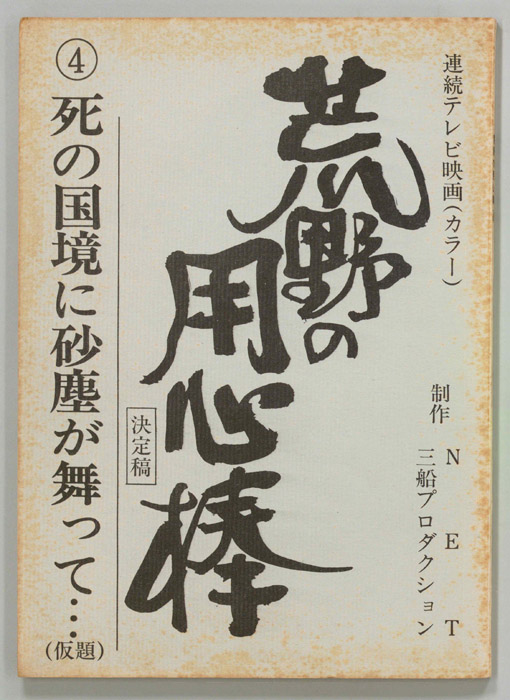 連続テレビ映画(カラー)
制作 NET
三船プロダクション
荒野の
用心棒
決定稿
④死の国境に砂塵が舞って…
(仮題)